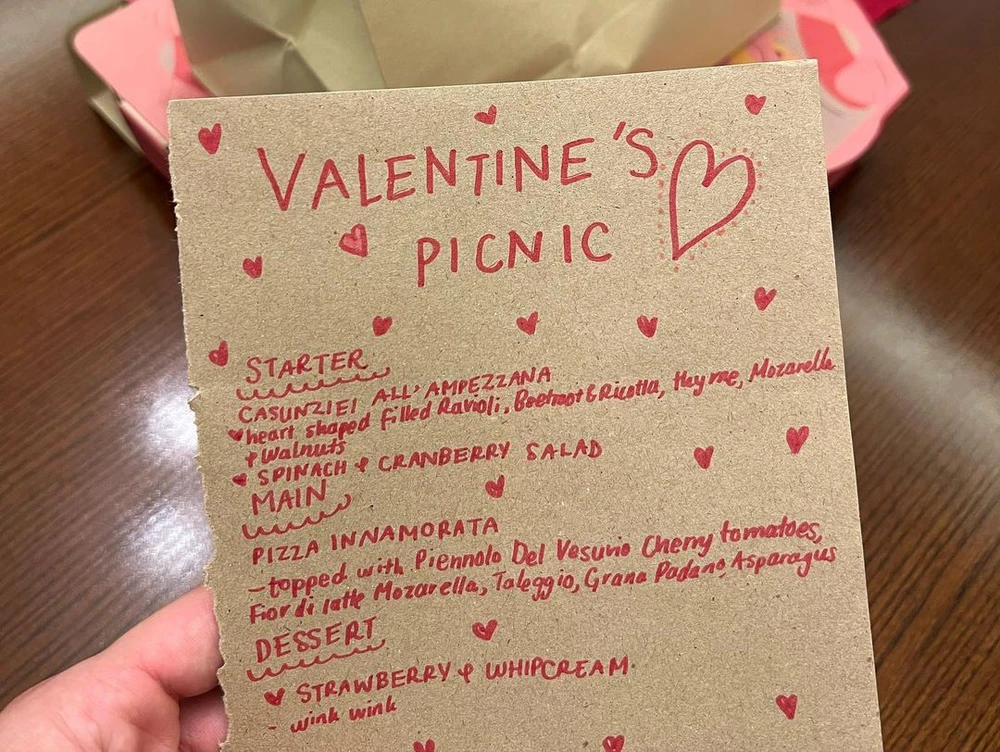 VALENTINE'S
PICNIC
STARTER
CASUNZIEI ALL' AMPEZZANA
heart shaped filled Ravioli, Beetroot & Ricotta, thyme, Mozarella
& walnuts
SPINACH & CRANBERRY SALAD
MAIN
PIZZA INNAMORATA
- topped with Piennolo Del Vesuvio Cherry tomatoes,
Fior di latte Mozarella, Taleggio, Grana Padano, Asparagus
DESSERT
STRAWBERRY & WHIPCREAM
- wink wink